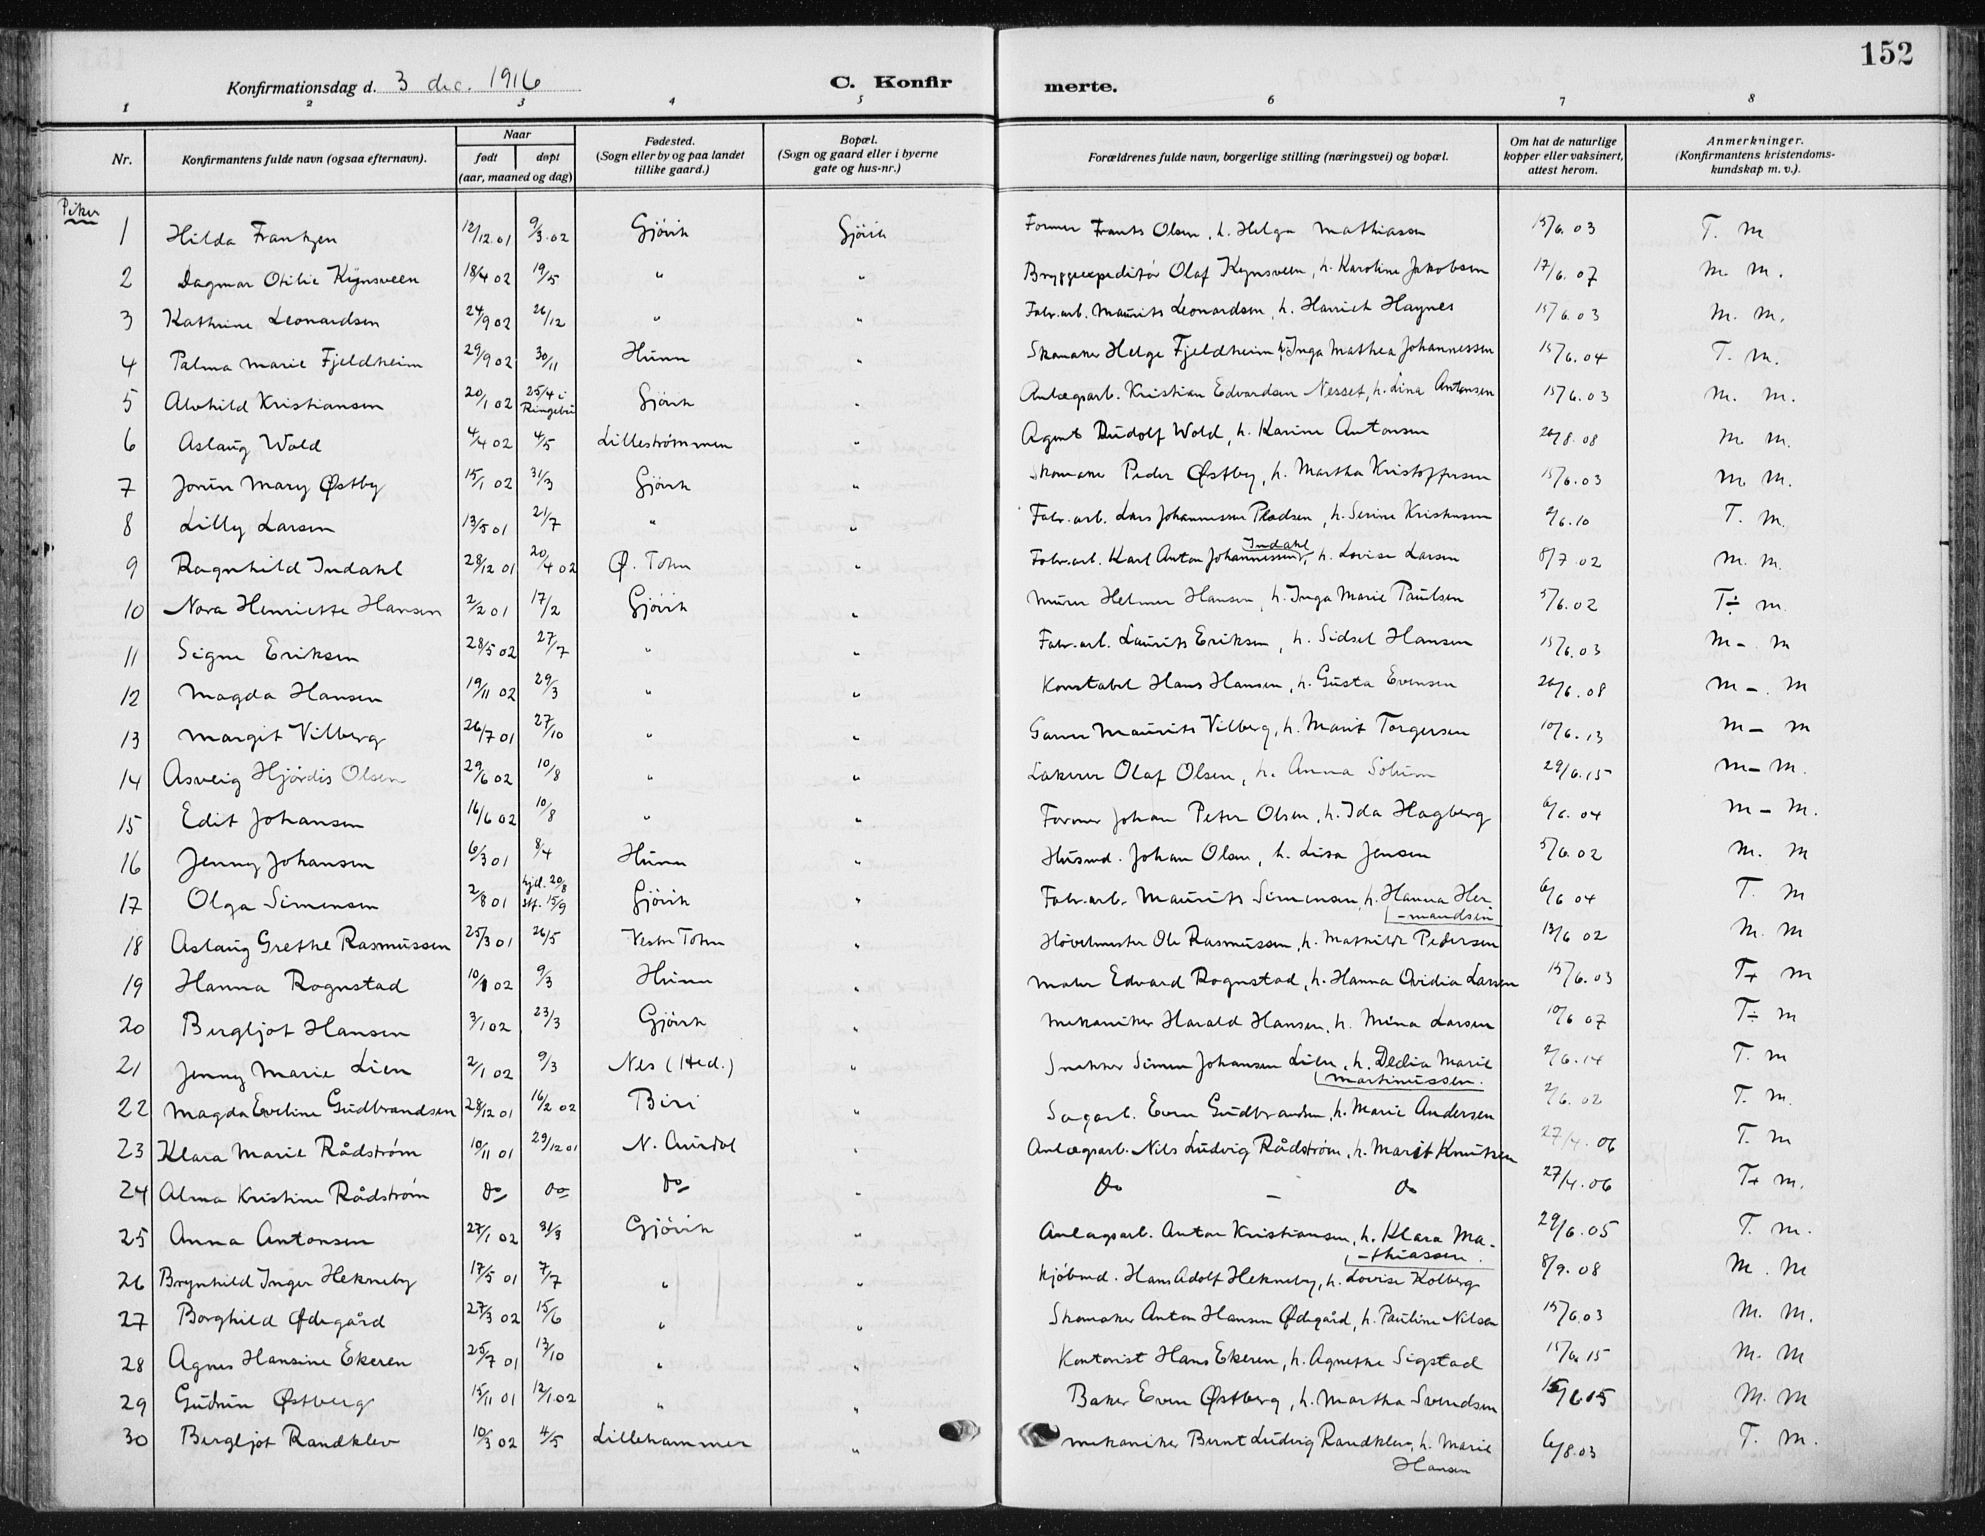 152
Konfirmationsdag d. 3 dec. 1916 C. Konfir merte.
1 2 3 4 5 6 7 8
Nr. Konfirmantens fulde navn (ogsaa efternavn). Naar født døpt (aar, maaned og dag) Fødested. (Sogn eller by og paa landet tillike gaard.) Bopæl. (Sogn og gaard eller i byerne gate og hus-nr.) Forældrenes fulde navn, borgerlige stilling (næringsvei) og bopæl. Om hat de naturlige kopper eller vaksinert, attest herom. Anmerkninger. (Konfirmantens kristendoms-kundskap m. v.).
Piker
1 Hilda Frantzen 12/12 01 9/3 02 Gjövik Gjövik Former Frants Olsen, h. Helga Mathiasen 15/6. 03 T. M
2 Dagmar Otilie Kynsveen 18/4 02 19/5 " " Bryggeexpeditör Olaf Kynsveen, h. Karoline Jakobsen 17/6. 07 M. M.
3 Kathrine Leonardsen 24/9 02 26/12 " " Fabr.arb. Maurits Leonardsen, h. Harriet Haynes 15/6. 03 M. M.
4 Palma Marie Fjeldheim 29/9 02 30/11 Hunn " Skomaker Helge Fjeldheim, h. Inga Mathea Johannessen 15/6. 04 T. M.
5 Alvhild Kristiansen 20/1 02 25/4 i Ringebu Gjövik " Anlægsarb. Kristian Edvardsen Nesset, h. Lina Antonsen 15/6. 03 M. M.
6 Aslaug Wold 4/4 02 4/5 Lillestrømmen " Agent Rudolf Wold, h. Karine Antonsen 26/8. 08 M. M.
7 Jorun Mary Østby 15/1 02 31/3 Gjövik " Skomaker Peder Østby, h. Martha Kristoffersen 15/6. 03 M. M.
8 Lilly Larsen 13/5 01 21/7 " " Fabr.arb. Lars Johannessen Pladsen, h. Serine Kristiansen 2/6. 10 T. M.
9 Ragnhild Indahl 28/12 01 20/4 02 Ø. Toten " Fabr.arb. Karl Anton Johannessen Indahl, h. Lovise Larsen 8/7 02 M. M.
10 Nora Henriette Hansen 2/2 01 17/2 Gjövik " Murer Helmer Hansen, h. Inga Marie Paulsen 5/6. 02 T÷ M.
11 Signe Eriksen 28/5 02 27/7 " " Fabr.arb. Laurits Eriksen, h. Sidsel Hansen 15/6. 03 M -. M
12 Magda Hansen 19/11 02 29/3 " " Konstabel Hans Hansen, h. Gusta Evensen 26/6. 08 M -. M
13 Margit Vilberg 26/7 01 27/10 " " Garver Maurits Vilberg, h. Marit Torgersen 10/6. 13 M - M
14 Asveig Hjördis Olsen 29/6 02 10/8 " " Lakerer Olaf Olsen, h. Anna Solum 29/6. 15 M - M.
15 Edit Johansen 16/6 02 10/8 " " Former Johan Peter Olsen, h. Ida Hagberg 6/6. 04 M - M.
16 Jenny Johansen 6/3 01 8/4 Hunn " Husmd. Johan Olsen, h. Lisa Jensen 5/6. 02 M. M
17 Olga Simensen 2/8 01 hjd. 20/8 stf. 15/9 Gjövik " Fabr.arb. Maurits Simensen, h. Hanna Her-mandsen 6/6 04 T. M
18 Aslaug Grethe Rasmussen 25/3 01 26/5 Vestr Toten " Høvelmester Ole Rasmussen, h. Mathilde Pedersen 13/6 02 M. M
19 Hanna Rognstad 10/1 02 9/3 Hunn " Maler Edvard Rognstad, h. Hanna Ovidia Larsen 15/6. 03 T+ M
20 Bergljot Hansen 3/1 02 23/3 Gjövik " Mekaniker Harald Hansen, h. Mina Larsen 10/6 07 T÷ M
21 Jenny Marie Lien 2/1 02 9/3 Nes (Hed.) " Snekker Simen Johansen Lien, h. Dedia Marie Martinussen. 2/6. 14 T. M
22 Magda Eveline Gudbrandsen 28/12 01 16/2 02 Biri " Sagarb. Even Gudbrandsen, h. Marie Andersen 2/6. 02 T. M.
23 Klara Marie Rådstrøm 10/11 01 29/12 01 N. Aurdal " Anlægsarb. Nils Ludvig Rådstrøm, h. Marit Knutsen 27/4. 06 T. M
24 Alma Kristine Rådstrøm do do do " Do - do 27/4. 06 T+ M.
25 Anna Antonsen 27/1 02 31/3 Gjövik " Anlægsarb. Anton Kristiansen, h. Klara Ma-thiassen. 29/6. 05 T. M.
26 Brynhild Inger Hekneby 17/5 01 7/7 " " Kjöbmd. Hans Adolf Hekneby, h. Lovise Kolberg 8/9. 08 M. M
27 Borghild Ødegård 27/3 02 15/6 " " Skomaker Anton Hansen Ødegård, h. Pauline Nilsen 15/6. 03 M. M.
28 Agnes Hansine Ekeren 25/7 01 13/10 " " Kontorist Hans Ekeren, h. Agnethe Sigstad 15/6. 15 M. M
29 Gudrun Østberg 15/11 01 12/1. 02 " " Baker Even Østberg, h. Martha Svendsen 15/6 15 M. M
30 Bergljot Randklev 10/3 02 4/5 Lillehammer " Mekaniker Bernt Ludvig Randklev, h. Marie Hansen 6/8. 03 T. M.